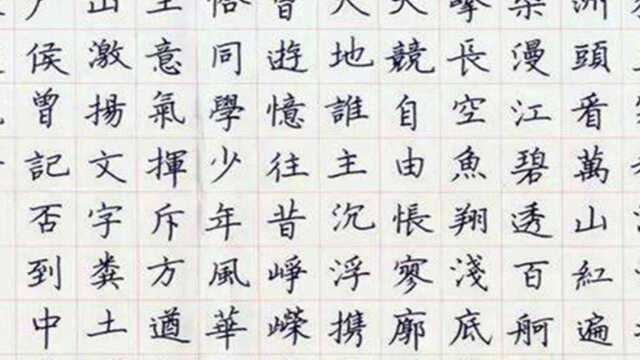 洲頭看萬山紅遍
染漫江碧透百舸
擊長空魚翔淺底
天競自由悵寥廓
大地誰主沉浮携
曾遊憶往昔崢嶸
恰同學少年風華
生意氣揮斥方遒
山激揚文字糞土
戶侯曾記否到中